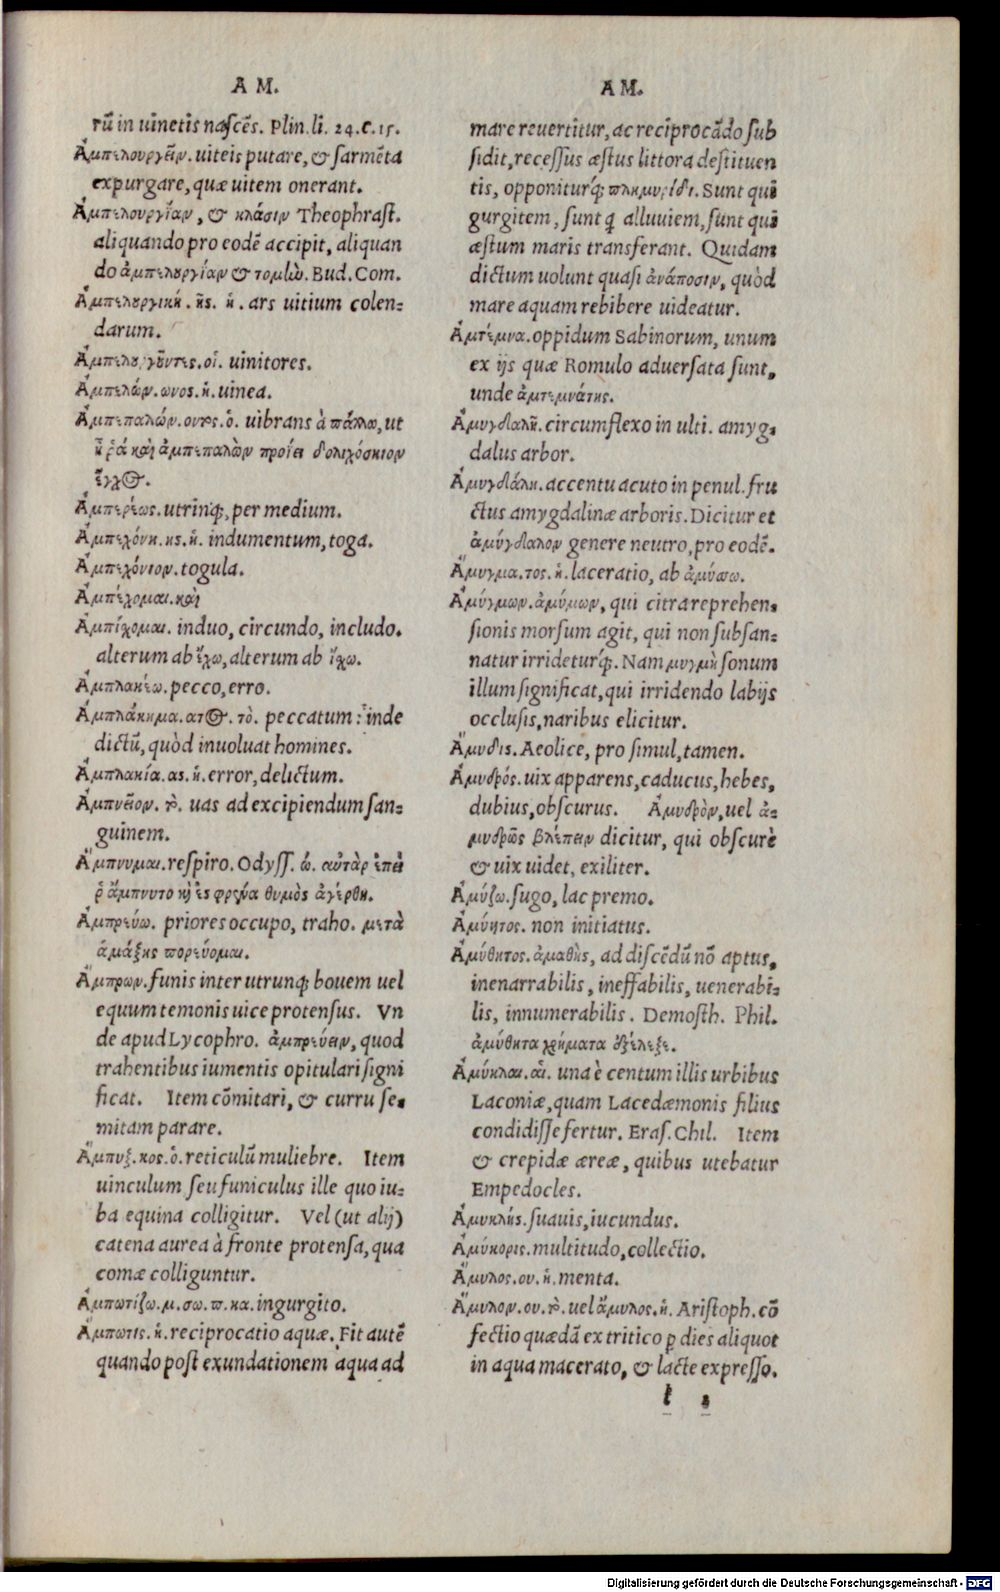 A M.
rū in uinetis nascēs. Plin. li. 24. c. 15.
Ἀμπελουργεῖν. uiteis putare, & sarmēta
expurgare, quæ uitem onerant.
Ἀμπελουργίαν, & κλάσιν Theophrast.
aliquando pro eodē accipit, aliquan
do ἀμπελουργίαν & τομὼ. Bud. Com.
Ἀμπελουργική. κῆς. ἡ. ars uitium colen-
darum.
Ἀμπελουργοῦντες. οἱ. uinitores.
Ἀμπελών. ωνος. ἡ. uinea.
Ἀμπεπαλών. οντος. ὁ. uibrans à πάλλω, ut
ἦ ῥά καὶ ἀμπεπαλὼν προΐει δολιχόσκιον
ἔγχος.
Ἀμπερέως. utrinq;, per medium.
Ἀμπεχόνη. ης. ἡ. indumentum, toga.
Ἀμπεχόνιον. togula.
Ἀμπέχομαι. καὶ
Ἀμπίχομαι. induo, circundo, includo.
alterum ab ἔχω, alterum ab ἴχω.
Ἀμπλακέω. pecco, erro.
Ἀμπλάκημα. ατος. τὸ. peccatum: inde
dictū, quòd inuoluat homines.
Ἀμπλακία. ας. ἡ. error, delictum.
Ἀμπνεῖον. τὸ. uas ad excipiendum san-
guinem.
Ἄμπνυμαι. respiro. Odyss. ώ. αὐτὰρ ἐπεὶ
ῥ ἄμπνυτο καὶ ἐς φρένα θυμὸς ἀγέρθη.
Ἀμπρεύω. priores occupo, traho. μετὰ
ἁμάξης πορεύομαι.
Ἄμπρων. funis inter utrunq; bouem uel
equum temonis uice protensus. Vn
de apud Lycophro. ἀμπρεύειν, quod
trahentibus iumentis opitulari signi
ficat. Item cōmitari, & curru se-
mitam parare.
Ἄμπυξ. κος. ὁ. reticulū muliebre. Item
uinculum seu funiculus ille quo iu-
ba equina colligitur. Vel (ut alij)
catena aurea à fronte protensa, qua
comæ colliguntur.
Ἀμπωτίζω. μ. σω. π. κα. ingurgito.
Ἄμπωτις. ἡ. reciprocatio aquæ. Fit autē
quando post exundationem aqua ad
A M.
mare reuertitur, ac reciprocādo sub
sidit, recessus æstus littora destituen
tis, opponiturq́; πλημυρίδι. Sunt qui
gurgitem, sunt q alluuiem, sunt qui
æstum maris transferant. Quidam
dictum uolunt quasi ἀνάποσιν, quòd
mare aquam rebibere uideatur.
Ἀμτέμνα. oppidum Sabinorum, unum
ex ijs quæ Romulo aduersata sunt,
unde ἀμτεμνάτης.
Ἀμυγδαλῆ. circumflexo in ulti. amyg-
dalus arbor.
Ἀμυγδάλη. accentu acuto in penul. fru
ctus amygdalinæ arboris. Dicitur et
ἀμύγδαλον genere neutro, pro eodē.
Ἄμυγμα. τος. ἡ. laceratio, ab ἀμύσσω.
Ἀμύγμων. ἀμύμων, qui citra reprehen-
sionis morsum agit, qui non subsan-
natur irrideturq́;. Nam μυγμὴ sonum
illum significat, qui irridendo labijs
occlusis, naribus elicitur.
Ἄμυδις. Aeolice, pro simul, tamen.
Ἀμυδρός. uix apparens, caducus, hebes,
dubius, obscurus. Ἀμυδρὸν, uel ἀ-
μυδρῶς βλέπειν dicitur, qui obscurè
& uix uidet, exiliter.
Ἀμύζω. sugo, lac premo.
Ἀμύητος. non initiatus.
Ἀμύθητος. ἀμαθὴς, ad discēdū nō aptus,
inenarrabilis, ineffabilis, uenerabi-
lis, innumerabilis. Demosth. Phil.
ἀμύθητα χρήματα ἐξέλεξε.
Ἀμύκλαι. αἱ. una è centum illis urbibus
Laconiæ, quam Lacedæmonis filius
condidisse fertur. Eras. Chil. Item
& crepidæ æreæ, quibus utebatur
Empedocles.
Ἀμυκλής. suauis, iucundus.
Ἀμύκορις. multitudo, collectio.
Ἄμυλος. ου. ἡ. menta.
Ἄμυλον. ου. τὸ. uel ἄμυλος. ἡ. Aristoph. cō
fectio quædā ex tritico p dies aliquot
in aqua macerato, & lacte expresso.
Digitalisierung gefördert durch die Deutsche Forschungsgemeinschaft - DFG